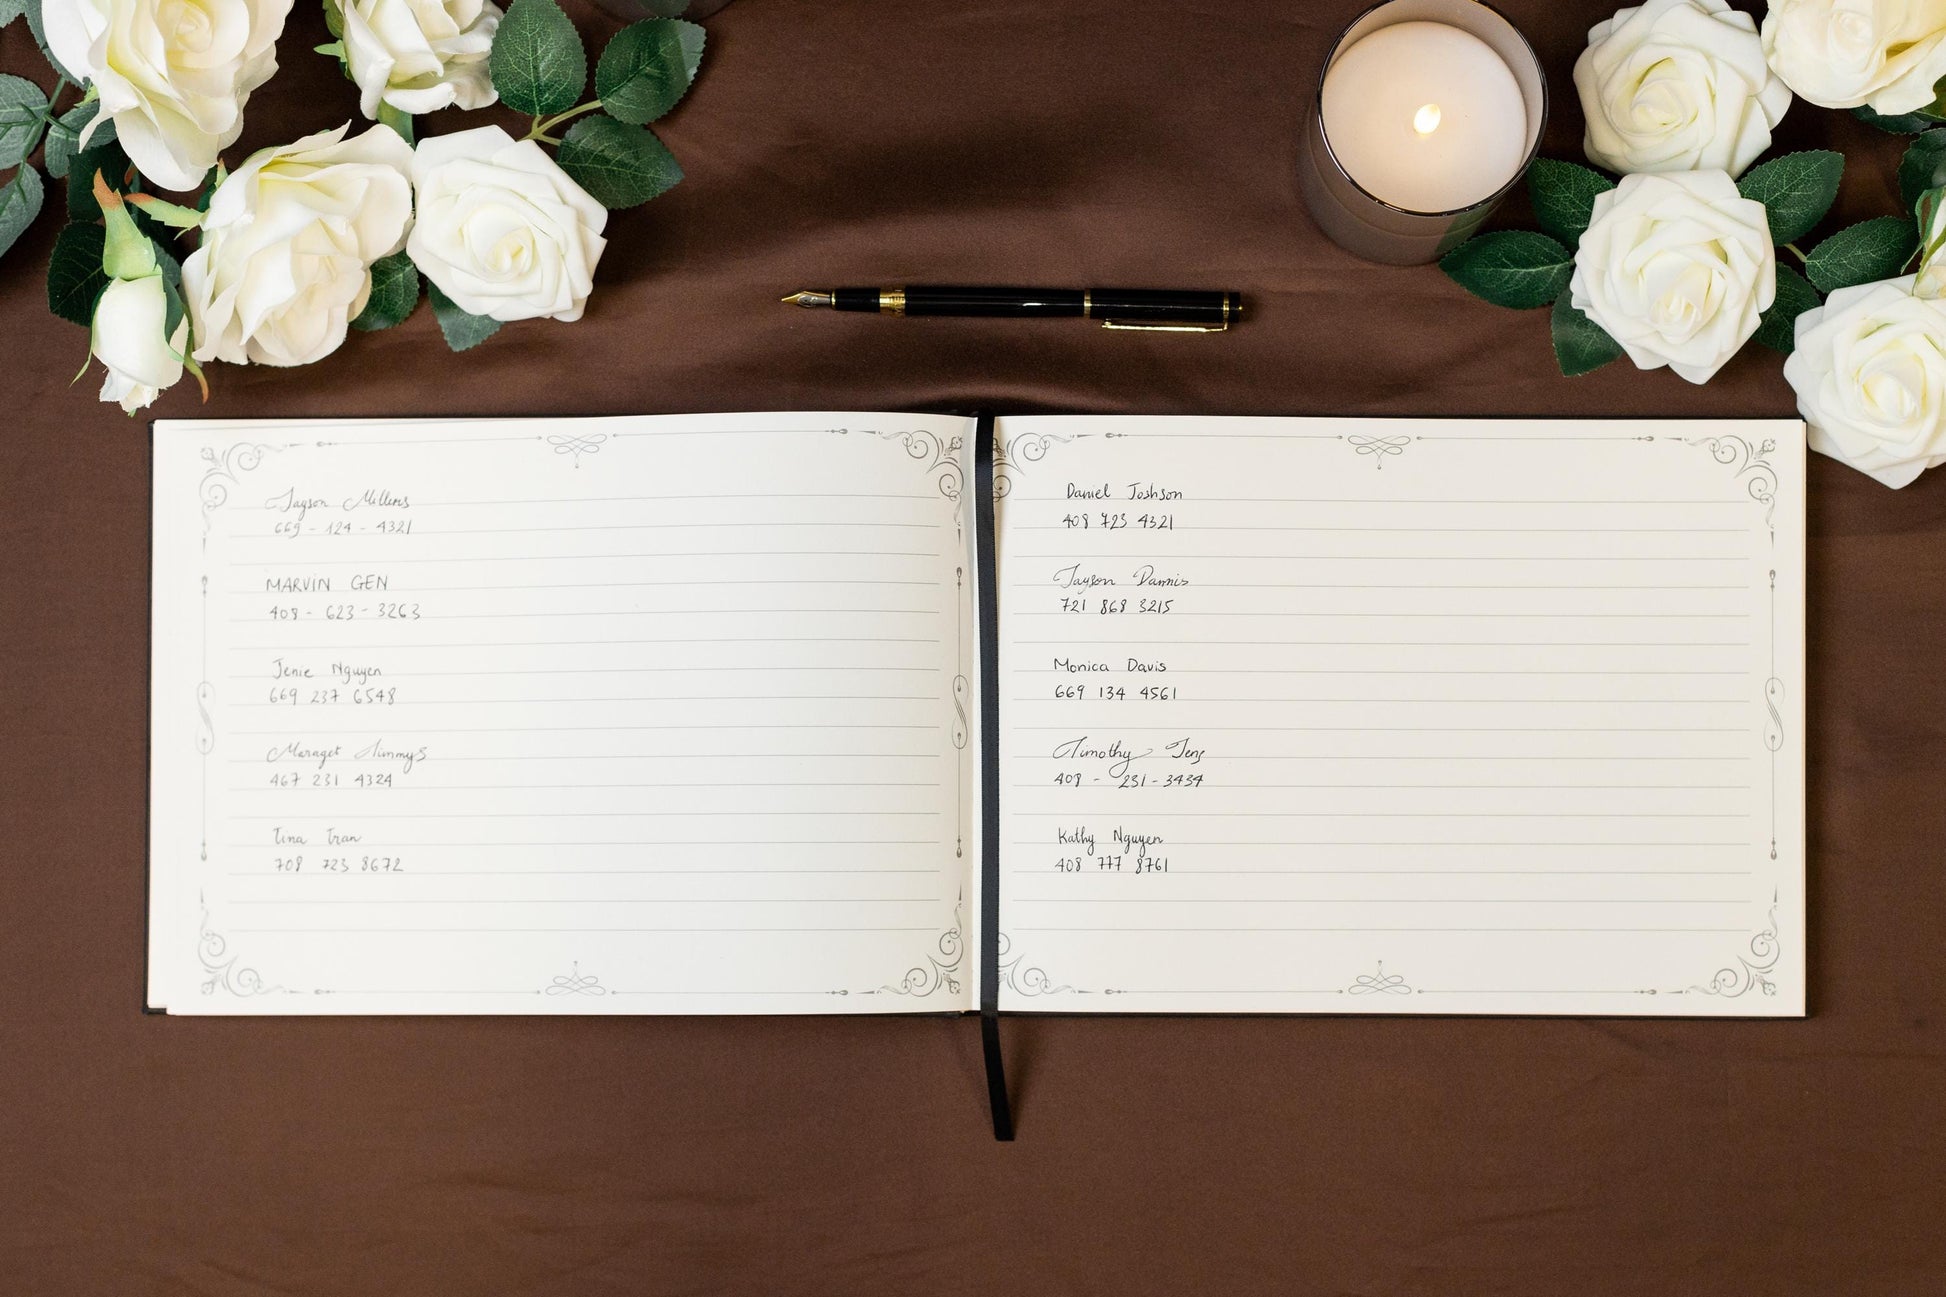 Jayson Millens
669 - 124 - 4321
MARVIN GEN
408 - 623 - 3263
Jenie Nguyen
669 237 6548
Meraget Jimmys
467 231 4324
Tina Tran
708 723 8672
Daniel Joshson
408 723 4321
Jayson Dannis
721 868 3215
Monica Davis
669 134 4561
Timothy
408 - 231 - 3434
Kathy Nguyen
408 777 8761